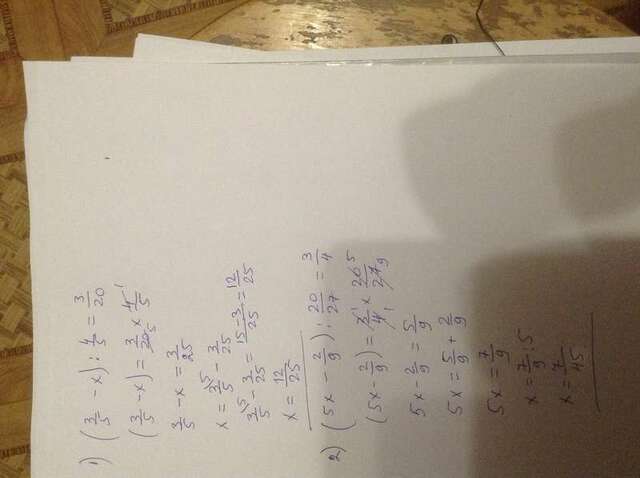 1) (3/5 - x) : 4/5 = 3/20
(3/5 - x) = 3/20 5 x 4/5 1
3/5 - x = 3/25
x = 3/5 \5 - 3/25
3/5 \5 - 3/25 = 15-3/25 = 12/25
x = 12/25
2) (5x - 2/9) : 20/27 = 3/4
(5x - 2/9) = 3/4 1 1 x 20/27 5 9
5x - 2/9 = 5/9
5x = 5/9 + 2/9
5x = 7/9
x = 7/9 : 5
x = 7/45